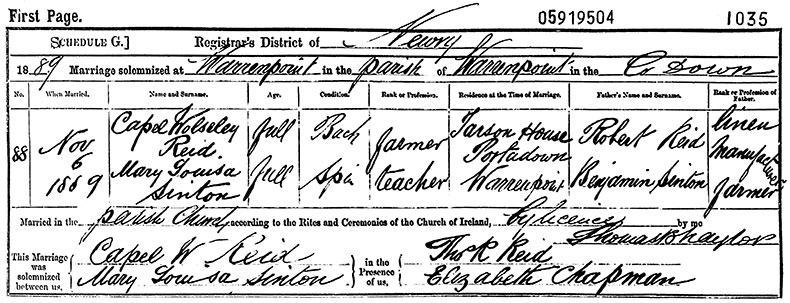 First Page. 05919504 1035
SCHEDULE G.] Registrar's District of Newry
1889 Marriage solemnized at Warrenpoint in the parish of Warrenpoint in the Co Down
No. When Married. Name and Surname. Age. Condition. Rank or Profession. Residence at the Time of Marriage. Father's Name and Surname. Rank or Profession of Father.
88 Nov 6 1889
Capel Wolseley Reid full Bach farmer Tarson House Portadown Robert Reid linen manufacturer
Mary Louisa Sinton full Spin teacher Warrenpoint Benjamin Sinton farmer
Married in the parish Church according to the Rites and Ceremonies of the Church of Ireland, by licence by me
Thomas B Naylor
This Marriage was solemnized between us, Capel W Reid in the Presence of us, Thos R Reid
Mary Louisa Sinton Elizabeth Chapman